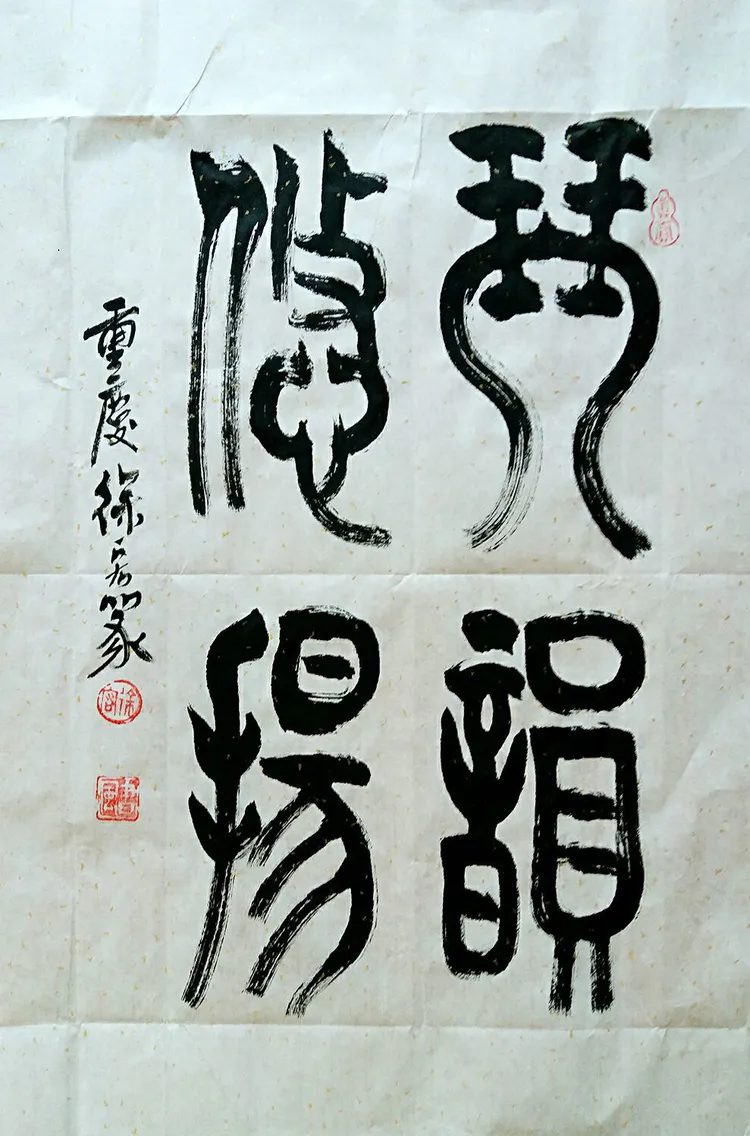 琴韻
悠揚
重慶徐篆